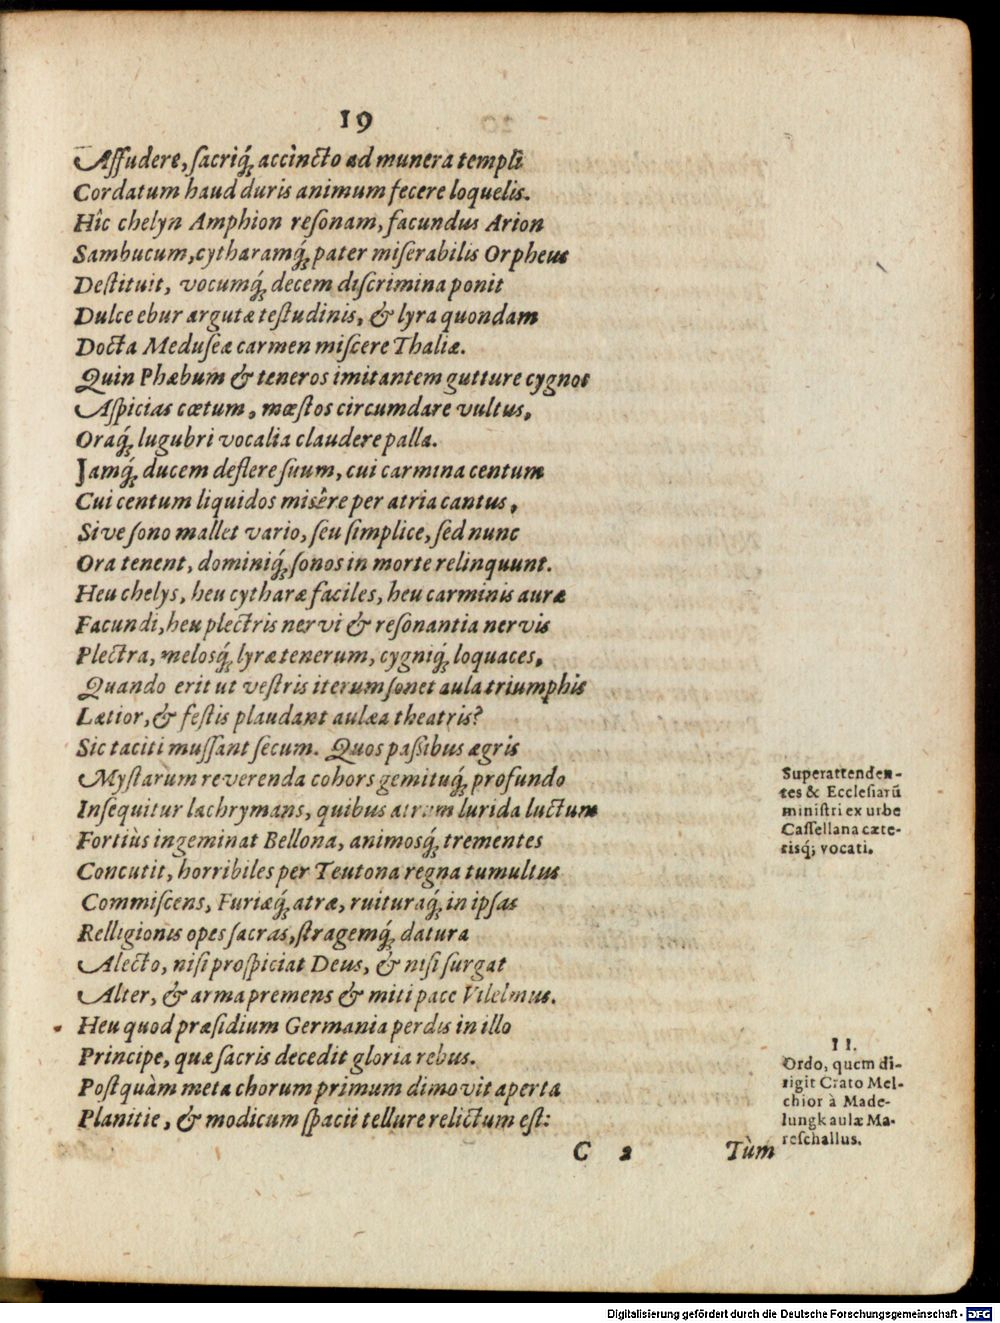 19
Aſſudere, ſacriq́; accincto ad munera templi
Cordatum haud duris animum fecere loquelis.
Hîc chelyn Amphion reſonam, facundus Arion
Sambucum, cytharamq́; pater miſerabilis Orpheus
Deſtituit, vocumq́; decem diſcrimina ponit
Dulce ebur argutæ teſtudinis, & lyra quondam
Docta Meduſeæ carmen miſcere Thaliæ.
Quin Phæbum & teneros imitantem gutture cygnos
Aſpicias cœtum, mæſtos circumdare vultus,
Oraq́; lugubri vocalia claudere palla.
Jamq́; ducem deflere ſuum, cui carmina centum
Cui centum liquidos misêre per atria cantus,
Sive ſono mallet vario, ſeu ſimplice, ſed nunc
Ora tenent, dominiq́; ſonos in morte relinquunt.
Heu chelys, heu cytharæ faciles, heu carminis auræ
Facundi, heu plectris nervi & reſonantia nervis
Plectra, melosq́; lyræ tenerum, cygniq́; loquaces,
Quando erit ut veſtris iterum ſonet aula triumphis
Lætior, & feſtis plaudant aulæa theatris?
Sic taciti muſſant ſecum. Quos paſſibus ægris
Myſtarum reverenda cohors gemituq́; profundo
Inſequitur lachrymans, quibus atrum lurida luctum
Fortiùs ingeminat Bellona, animosq́; trementes
Concutit, horribiles per Teutona regna tumultus
Commiſcens, Furiæq́; atræ, ruituraq́; in ipſas
Relligionis opes ſacras, ſtragemq́; datura
Alecto, niſi proſpiciat Deus, & niſi ſurgat
Alter, & arma premens & miti pace Vilelmus.
Heu quod præſidium Germania perdis in illo
Principe, quæ ſacris decedit gloria rebus.
Poſtquàm meta chorum primum dimovit aperta
Planitie, & modicum ſpacii tellure relictum eſt:
C 2 Tùm
Superattenden-
tes & Ecclesiarũ
miniſtri ex urbe
Caſſellana cæte-
risq́; vocati.
11.
Ordo, quem di-
rigit Crato Mel-
chior à Made-
lungk aulæ Ma-
reſchallus.
Digitalisierung gefördert durch die Deutsche Forschungsgemeinschaft - DFG